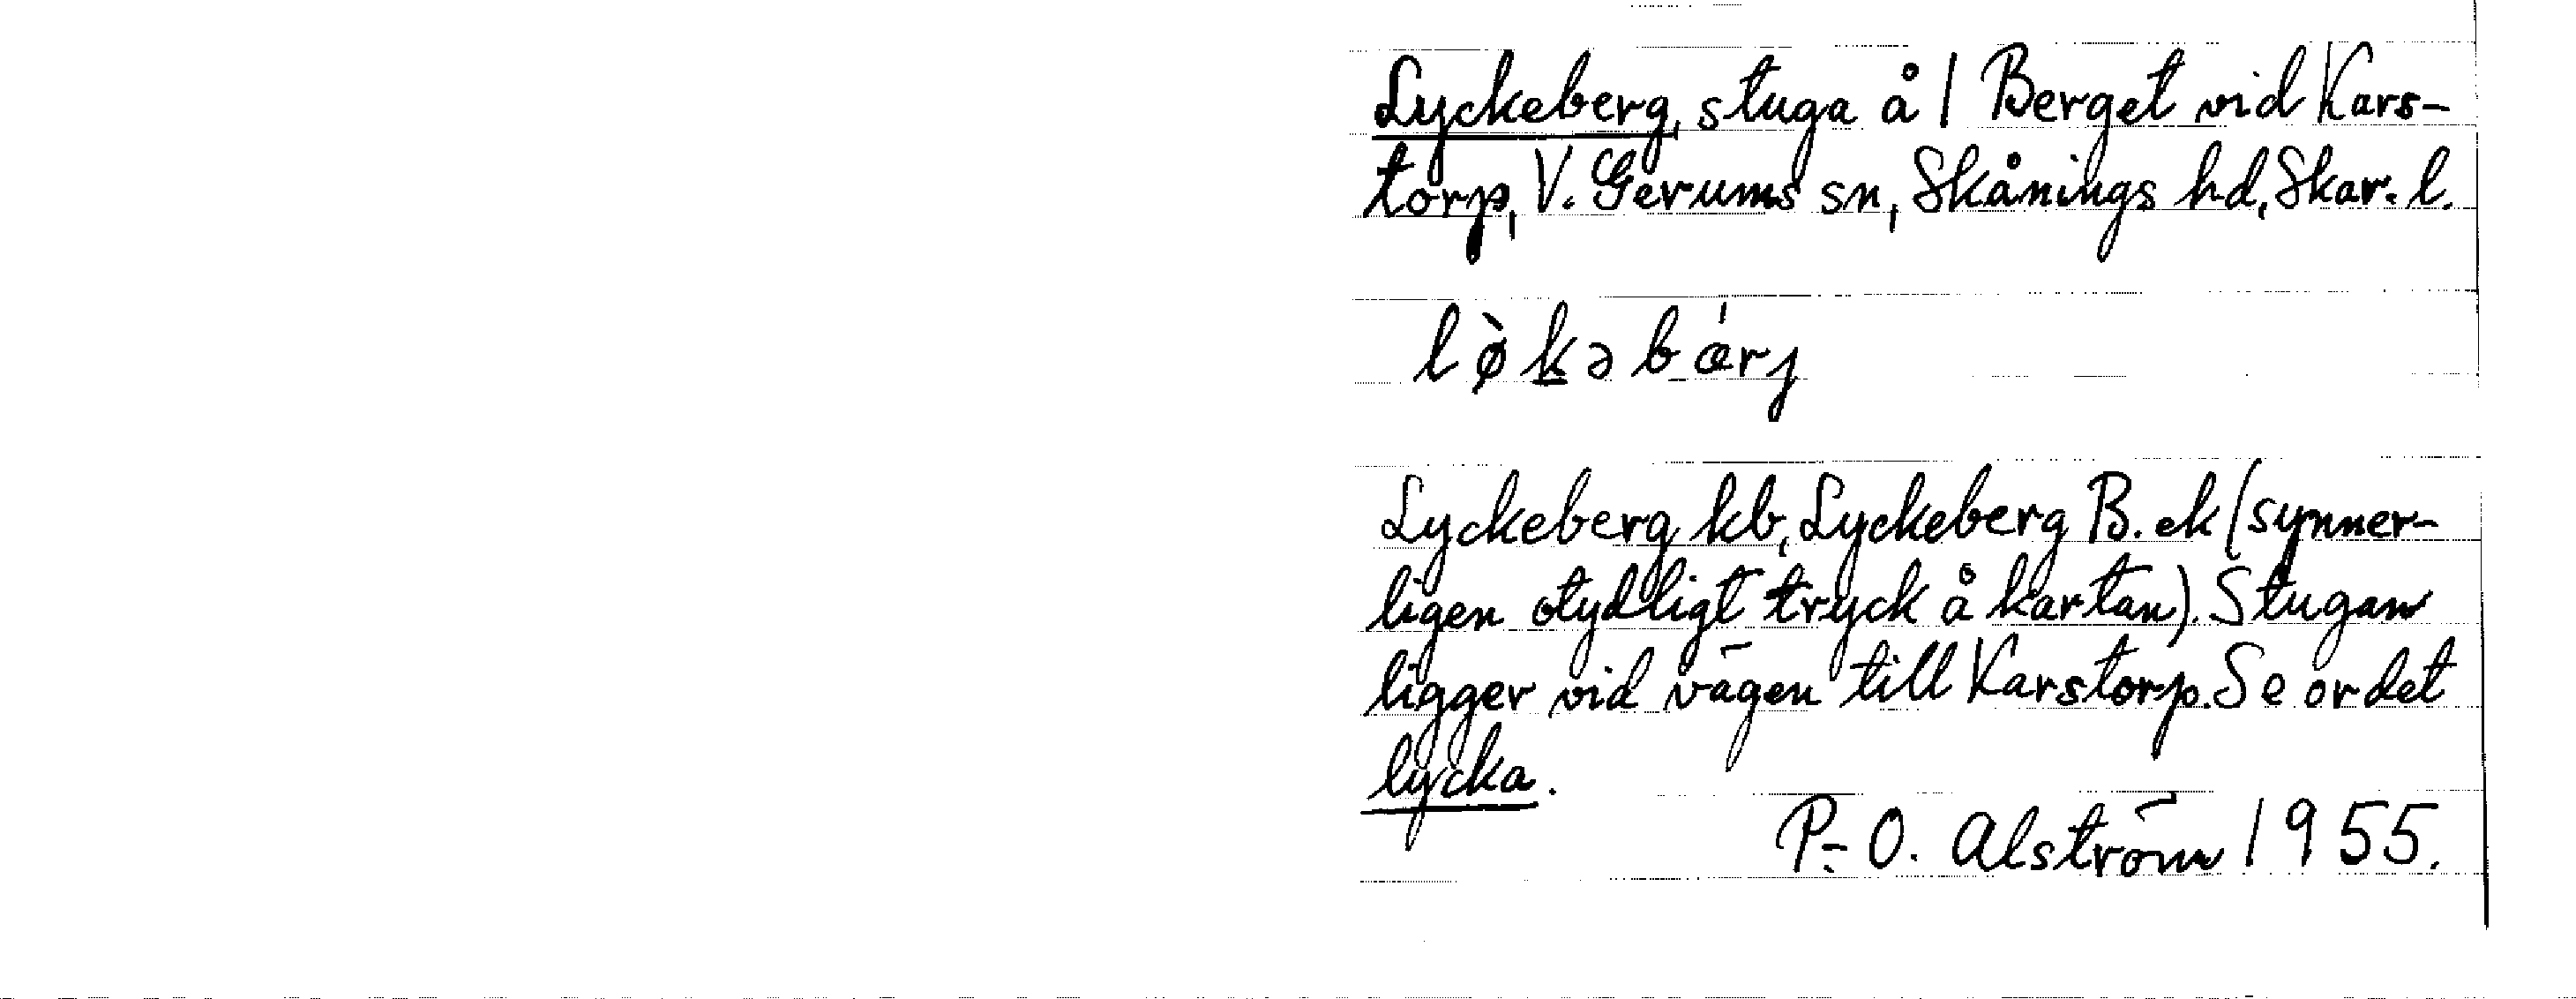 Lyckeberg, stuga å 1 Berget vid Kars-
torp, V. Gerums sn, Skånings hd, Skar. l.
lø̀kəbǽrj
Lyckeberg kb, Lyckeberg B. ek (synner-
ligen otydligt tryck å kartan). Stugan
ligger vid vägen till Karstorp. Se ordet
lycka.
P.-O. Alström 1955.